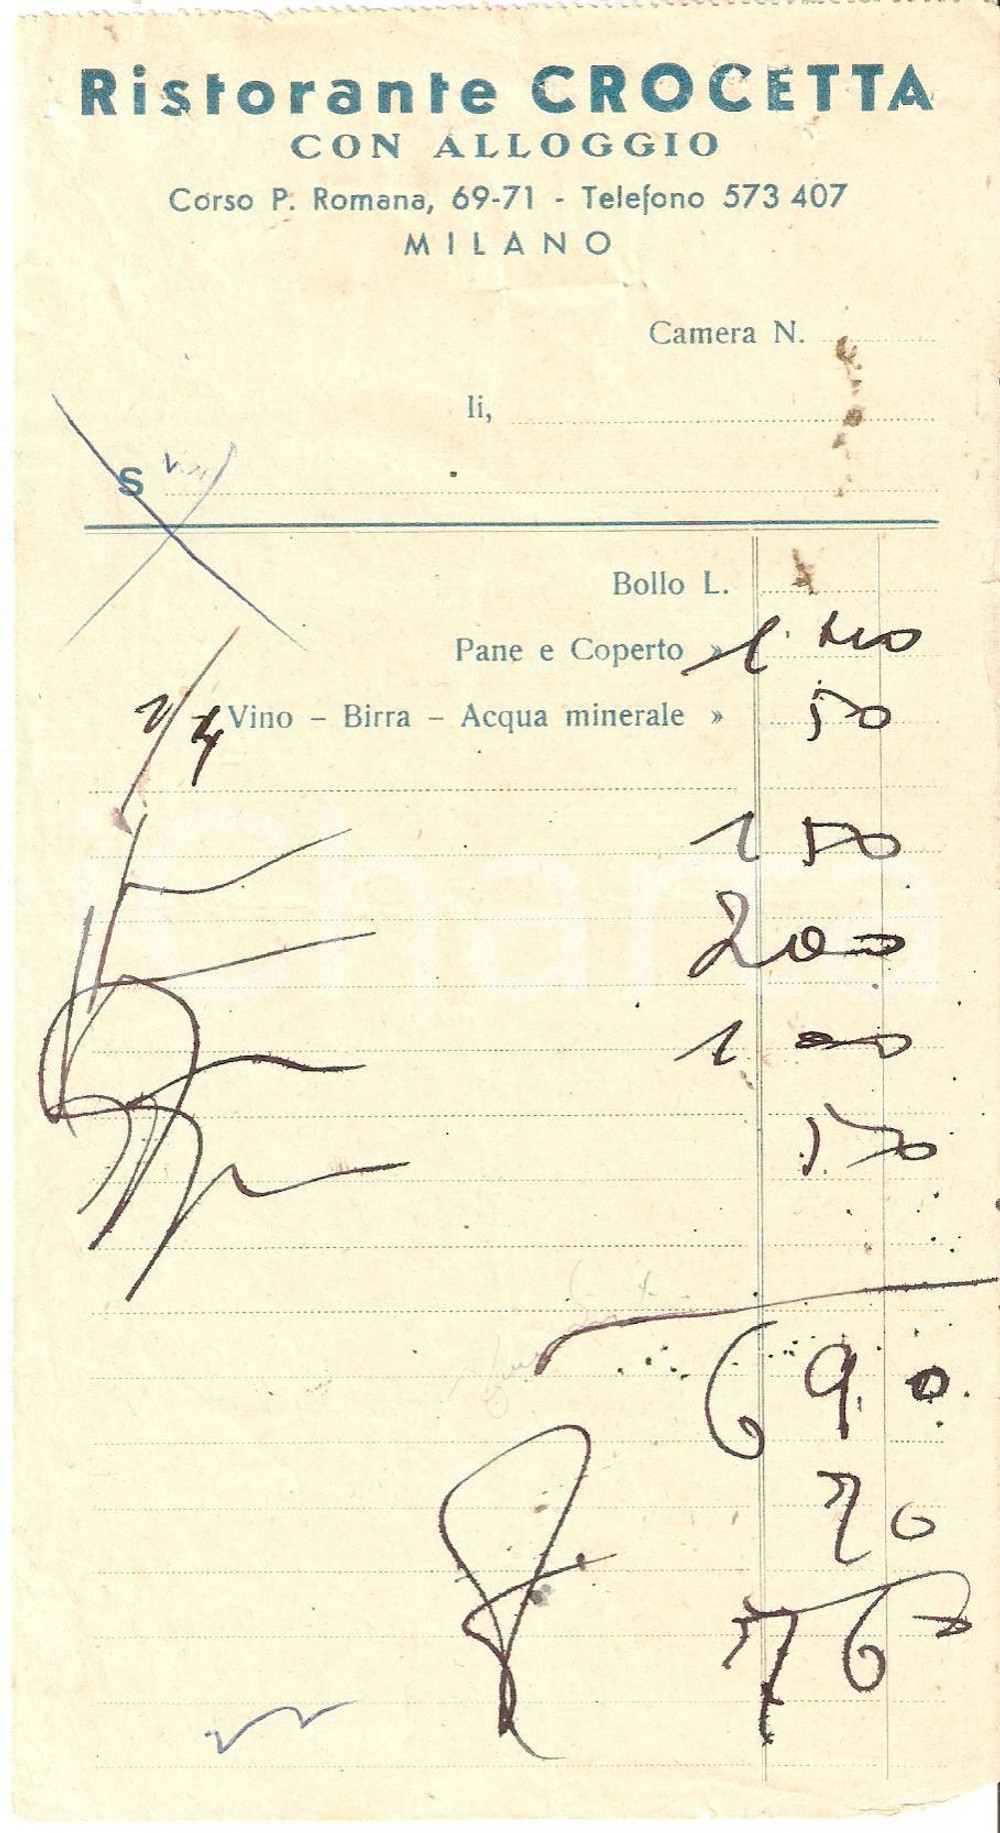 Ristorante CROCETTA
CON ALLOGGIO
Corso P. Romana, 69-71 - Telefono 573 407
MILANO
Camera N.
li,
S
Bollo L.
Pane e Coperto »
1/4 Vino - Birra - Acqua minerale » 50
150
200
100
50
690
70
760